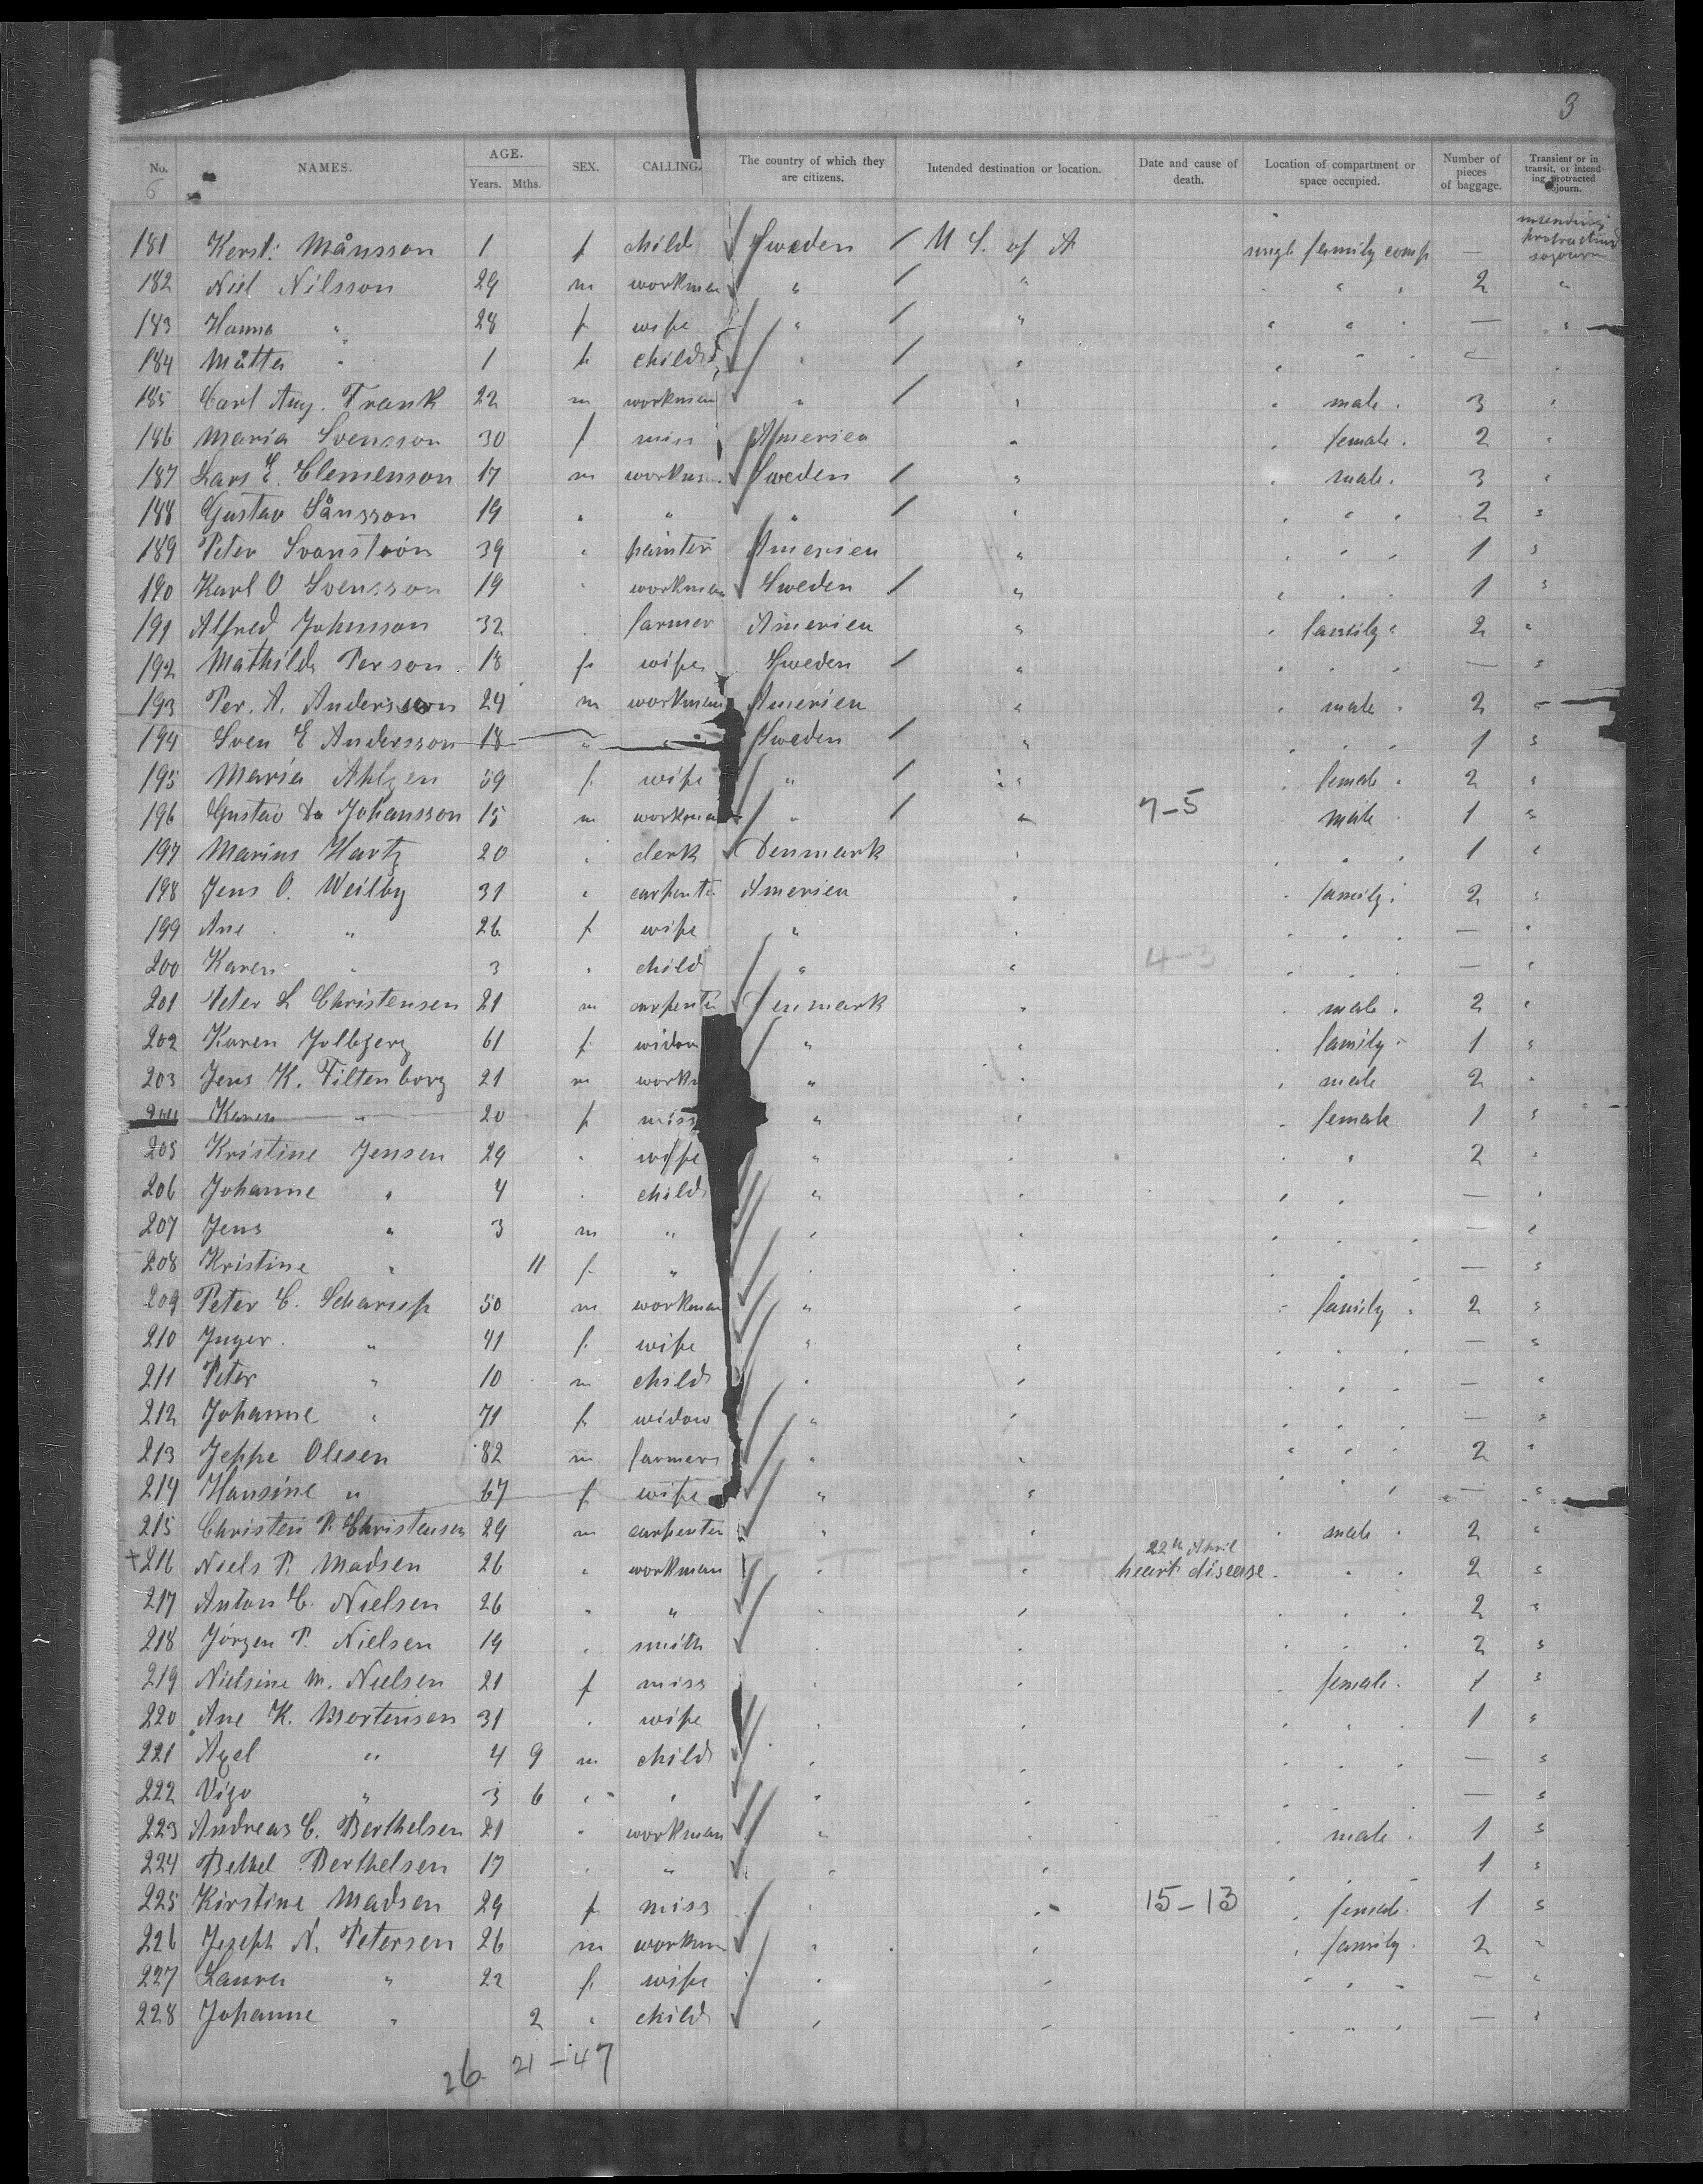 3
No. NAMES. AGE. Years. Mths. SEX. CALLING. The country of which they are citizens. Intended destination or location. Date and cause of death. Location of compartment or space occupied. Number of pieces of baggage. Transient or in transit, or intending protracted sojourn.
6
181 Kersti Månsson 1 f child Sweden / U S. of A single family comp — intending protracted sojourn
182 Niel Nilsson 29 m workman " / " " " " 2 "
183 Hanna " 28 f wife " / " " " " — "
184 Mätta " 1 f child " / " " " " — "
185 Carl Aug. Frank 22 m workman " / " " male " 3 "
186 Maria Svensson 30 f miss America " " female " 2 "
187 Lars E. Clemenson 17 m workman Sweden / " " male " 3 "
188 Gustav Sånsson 19 " " " / " " " " 2 "
189 Peter Svanströn 39 " painter America " " " " 1 "
190 Karl O Svensson 19 " workman Sweden / " " " " 1 "
191 Alfred Johnsson 32 " farmer America " " family " 2 "
192 Mathilda Person 18 f wife Sweden / " " " " — "
193 Per. A. Andersson 24 m workman America " " male " 2 "
194 Sven E Andersson 18 " " Sweden / " " " " 1 "
195 Maria Ahlgen 59 f wife " / " " female " 2 "
196 Gustav Johansson 15 m workman " / " 7-5 " male " 1 "
197 Marius Hartz 20 " clerk Denmark " " " " 1 "
198 Jens O. Weilby 31 " carpenter America " " family " 2 "
199 Ane " 26 f wife " " " " " — "
200 Karen " 3 " child " " 4-3 " " " — "
201 Peter L Christensen 21 m carpenter Denmark " " male " 2 "
202 Karen Jolbjerg 61 f widow " " " family " 1 "
203 Jens K. Tiltenborg 21 m workm " " " male 2 "
204 Karen " 20 f miss " " " female 1 "
205 Kristine Jensen 29 " wife " " " " 2 "
206 Johanne " 4 " child " " " " — "
207 Jens " 3 m " " " " " " — "
208 Kristine " 11 f " " " " " " — "
209 Peter C. Scharup 50 m workman " " " family " 2 "
210 Inger " 41 f wife " " " " " — "
211 Peter " 10 m child " " " " " — "
212 Johanne " 71 f widow " " " " " — "
213 Jeppe Olesen 82 m farmer " " " " " 2 "
214 Hansine " 67 f wife " " " " " — "
215 Christen P. Christensen 29 m carpenter " " " male " 2 "
+216 Niels P. Madsen 26 " workman " " 22th April heart disease " " " 2 "
217 Anton C. Nielsen 26 " " " " " " " 2 "
218 Jörgen P. Nielsen 19 " smith " " " " " 2 "
219 Nielsine M. Nielsen 21 f miss " " " female " 1 "
220 Ane K. Mortensen 31 " wife " " " " " 1 "
221 Axel " 4 9 m child " " " " " — "
222 Vigo " 3 6 " " " " " " " — "
223 Andreas C. Berthelsen 21 " workman " " " male " 1 "
224 Bethel Berthelsen 17 " " " " " " " 1 "
225 Kirstine Madsen 29 f miss " " 15-13 " female " 1 "
226 Jezeph N. Petersen 26 m workman " " " family " 2 "
227 Laura " 22 f wife " " " " " — "
228 Johanne " 2 " child " " " " " — "
26 21 -47